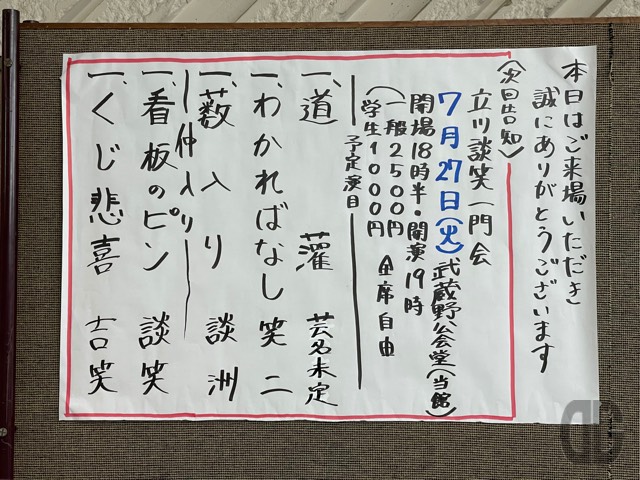 本日はご来場いただき
誠にありがとうございます
〈次回告知〉
立川談笑一門会
7月27日(火)武蔵野公会堂(当館)
開場18時半・開演19時
(一般2500円
学生1000円 全席自由
予定演目
一、道灌 芸名未定
一、わかればなし 笑二
一、薮入り 談洲
仲入り
一、看板のピン 談笑
一、くじ悲喜 吉笑